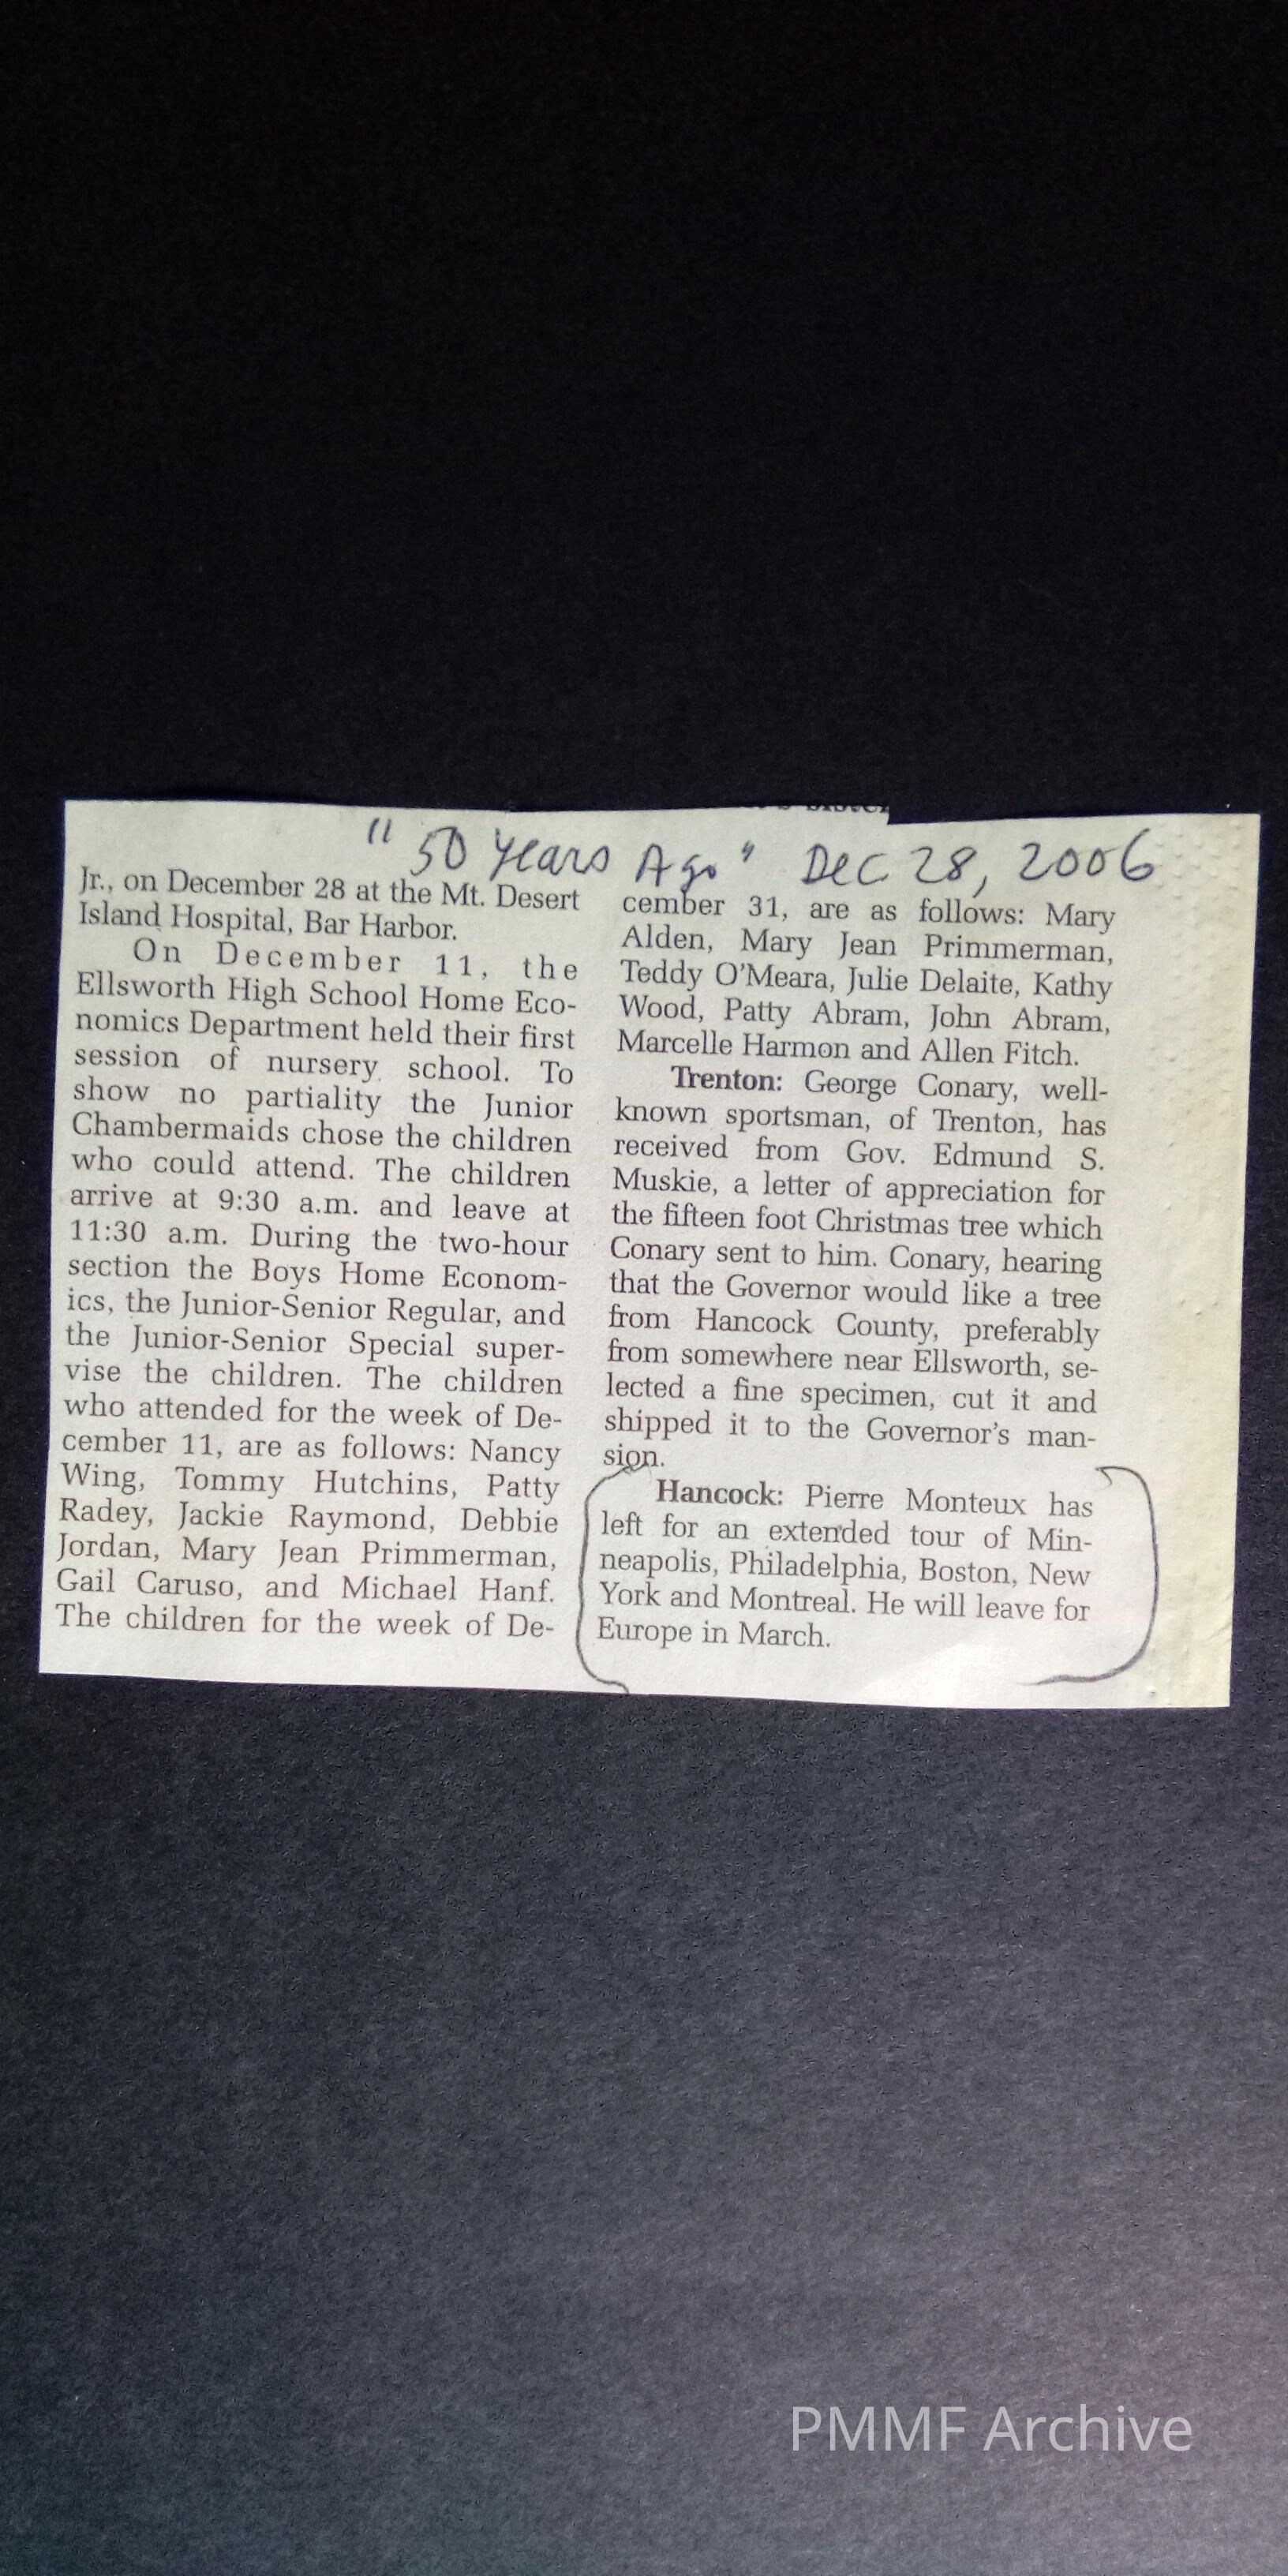 "50 Years Ago" Dec 28, 2006
Jr., on December 28 at the Mt. Desert
Island Hospital, Bar Harbor.
On December 11, the
Ellsworth High School Home Eco-
nomics Department held their first
session of nursery school. To
show no partiality the Junior
Chambermaids chose the children
who could attend. The children
arrive at 9:30 a.m. and leave at
11:30 a.m. During the two-hour
section the Boys Home Econom-
ics, the Junior-Senior Regular, and
the Junior-Senior Special super-
vise the children. The children
who attended for the week of De-
cember 11, are as follows: Nancy
Wing, Tommy Hutchins, Patty
Radey, Jackie Raymond, Debbie
Jordan, Mary Jean Primmerman,
Gail Caruso, and Michael Hanf.
The children for the week of De-
cember 31, are as follows: Mary
Alden, Mary Jean Primmerman,
Teddy O'Meara, Julie Delaite, Kathy
Wood, Patty Abram, John Abram,
Marcelle Harmon and Allen Fitch.
Trenton: George Conary, well-
known sportsman, of Trenton, has
received from Gov. Edmund S.
Muskie, a letter of appreciation for
the fifteen foot Christmas tree which
Conary sent to him. Conary, hearing
that the Governor would like a tree
from Hancock County, preferably
from somewhere near Ellsworth, se-
lected a fine specimen, cut it and
shipped it to the Governor's man-
sion.
Hancock: Pierre Monteux has
left for an extended tour of Min-
neapolis, Philadelphia, Boston, New
York and Montreal. He will leave for
Europe in March.
PMMF Archive